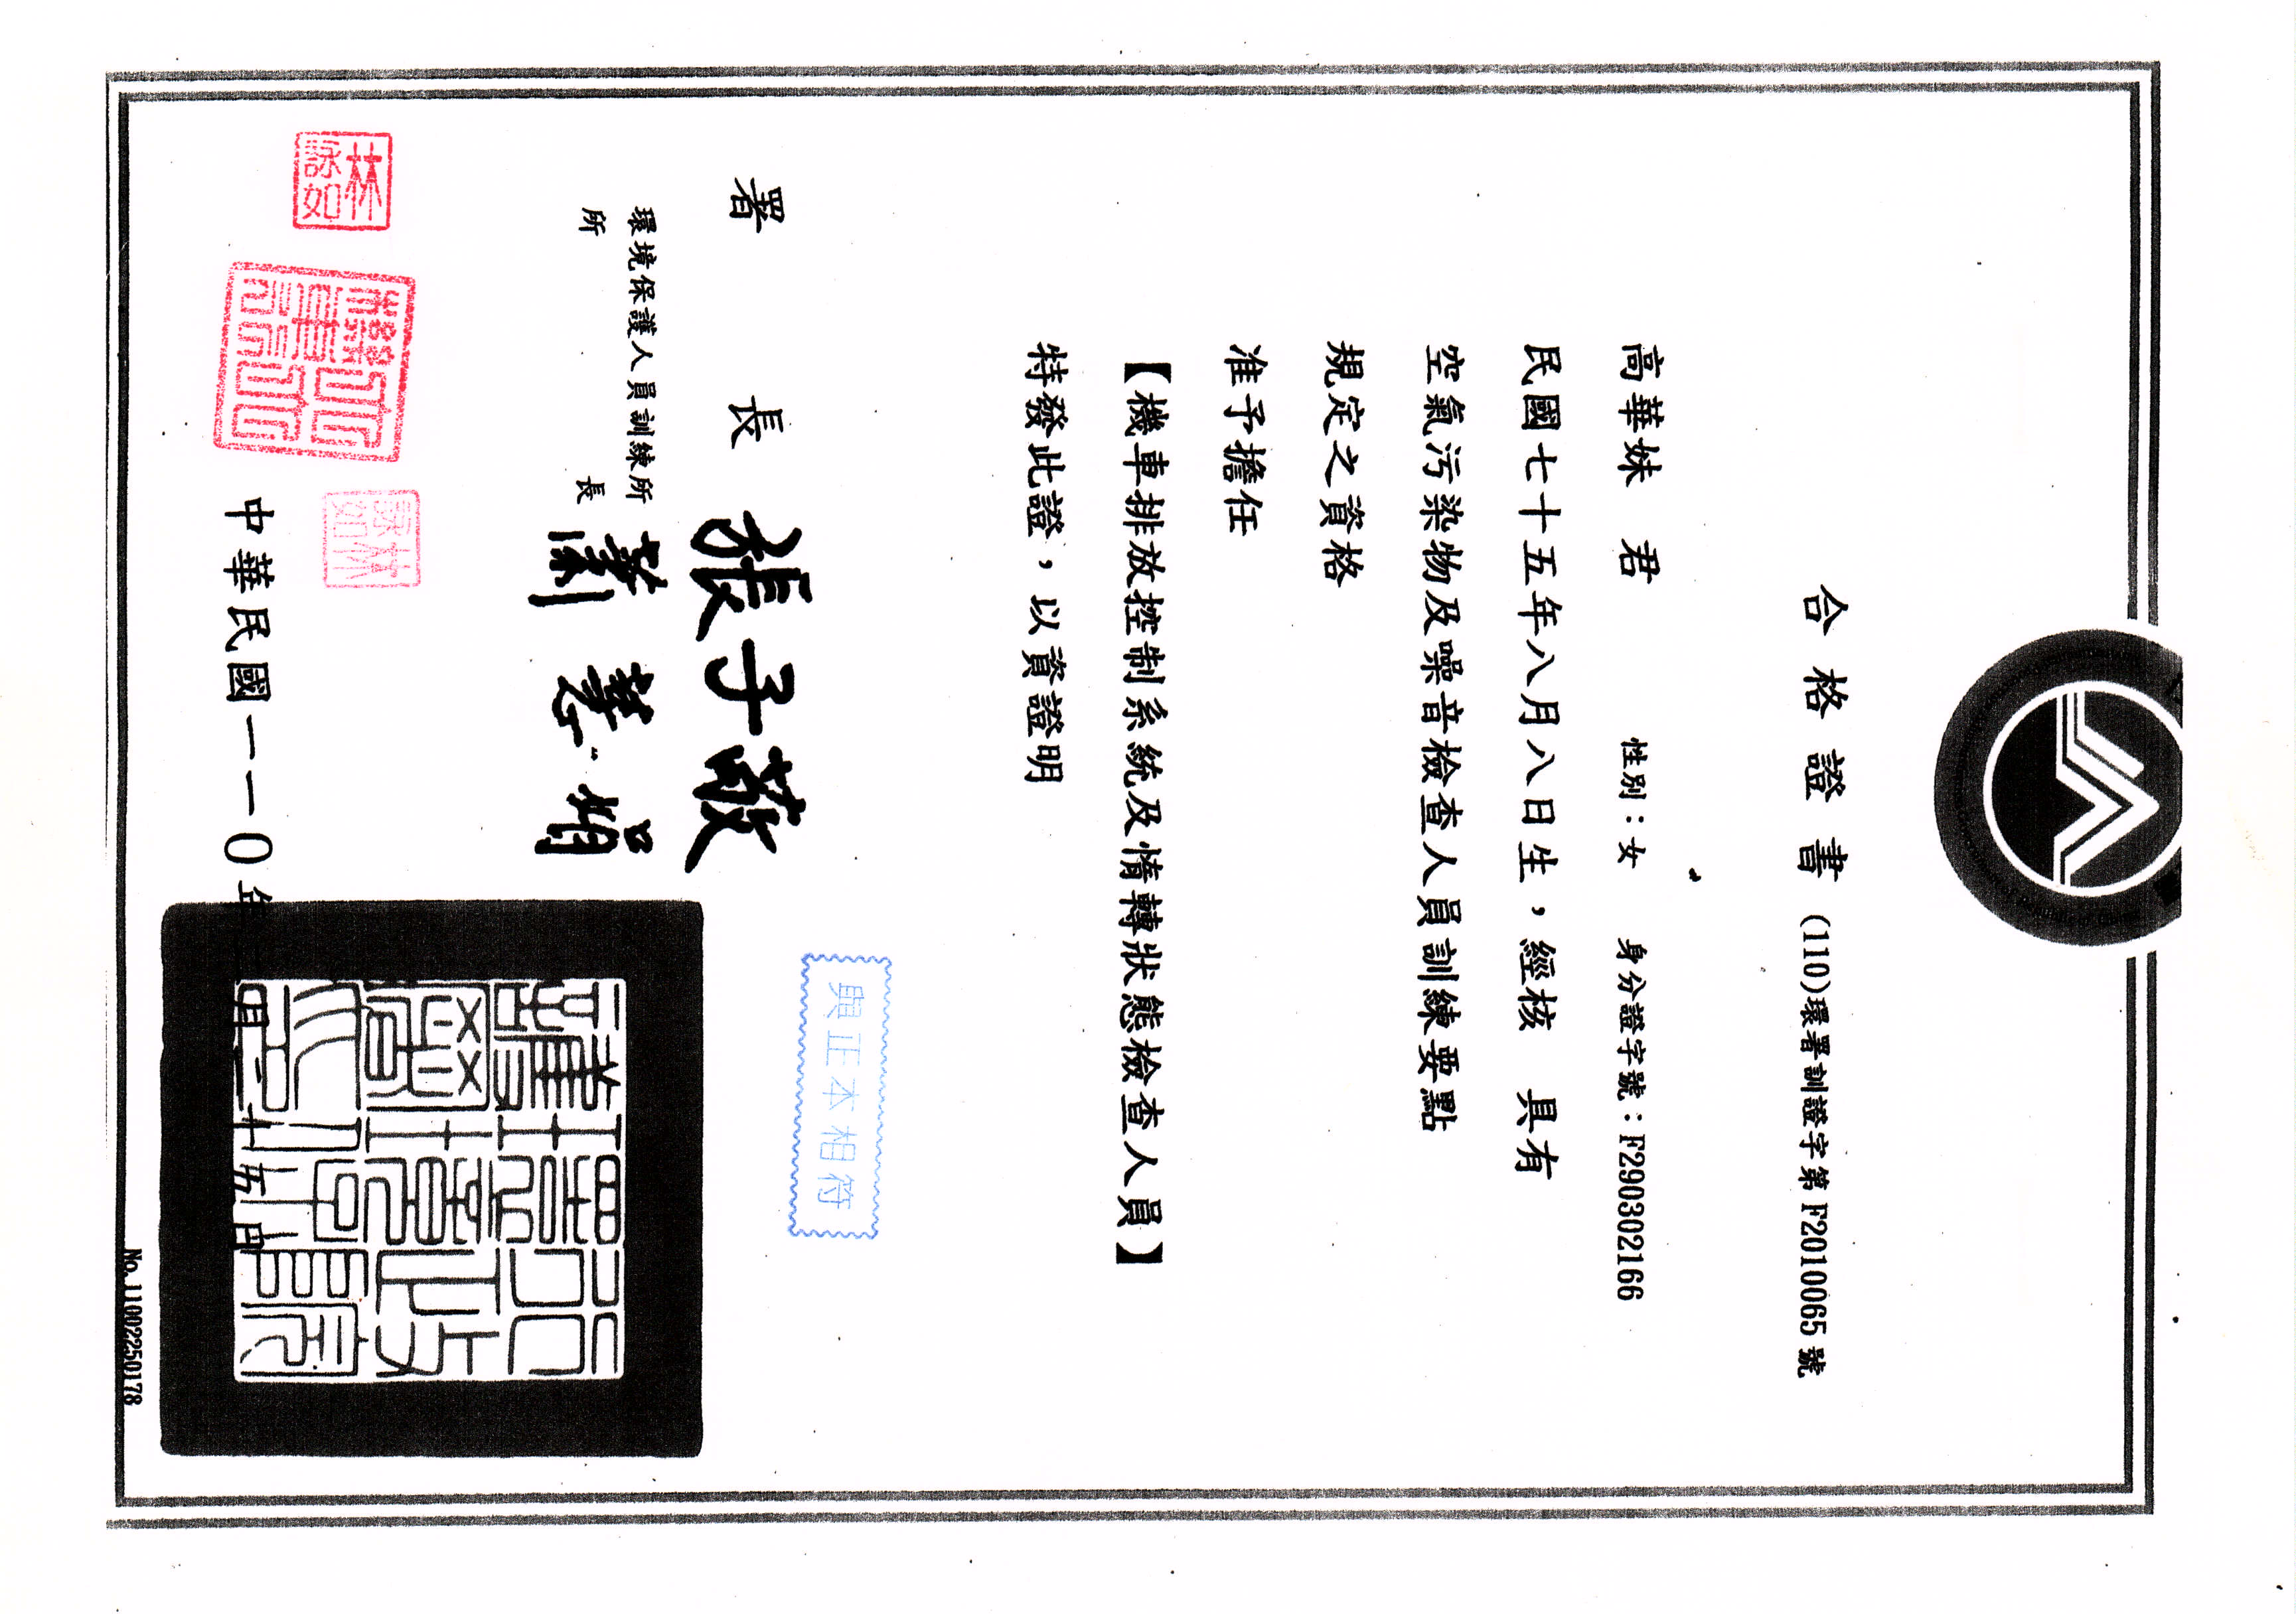 合格證書 (110)環署訓證字第F2010065號
高華妹 君 性別：女 身分證字號：F290302166
民國七十五年八月八日生，經核 具有
空氣污染物及噪音檢查人員訓練要點
規定之資格
准予擔任
【機車排放控制系統及惰轉狀態檢查人員】
特發此證，以資證明
與正本相符
署 長 張子敬
環境保護人員訓練所
所 長 蕭慧娟
林詠如
林詠如
中華民國一一０年二月二十五日
No.1100225017​8